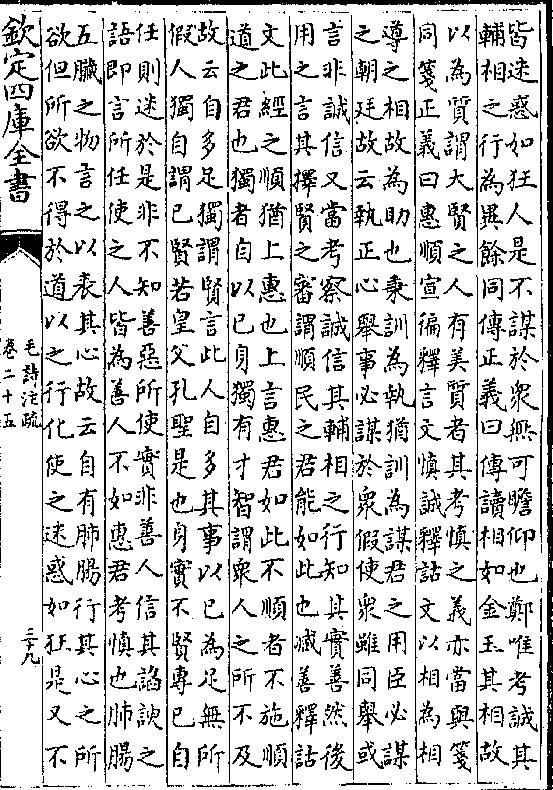 皆迷惑如狂人是不謀於衆無可瞻仰也鄭唯考誠其
輔相之行為異餘同傳正義曰傳讀相如金玉其相故
以為質謂大賢之人有美質者其考慎之義亦當與箋
同箋正義曰惠順宣徧釋言文慎誠釋詁文以相為相
導之相故為助也秉訓為執猶訓為謀君之用臣必謀
之朝廷故云執正心舉事必謀於衆假使衆雖同舉或
言非誠信又當考察誠信其輔相之行知其實善然後
用之言其擇賢之審謂順民之君能如此也臧善釋詁
文此經之順猶上惠也上言惠君如此不順者不施順
道之君也獨者自以已身獨有才智謂衆人之所不及
故云自多足獨謂賢言此人自多其事以已為足無所
假人獨自謂已賢若皇父孔聖是也身實不賢專已自
任則迷於是非不知善惡所使實非善人信其諂諛之
語即言所任使之人皆為善人不如惠君考慎也肺腸
五臟之物言之以表其心故云自有肺腸行其心之所
欲但所欲不得於道以之行化使之迷惑如狂是又不
欽定四庫全書
毛詩注疏
卷二十五
三十九